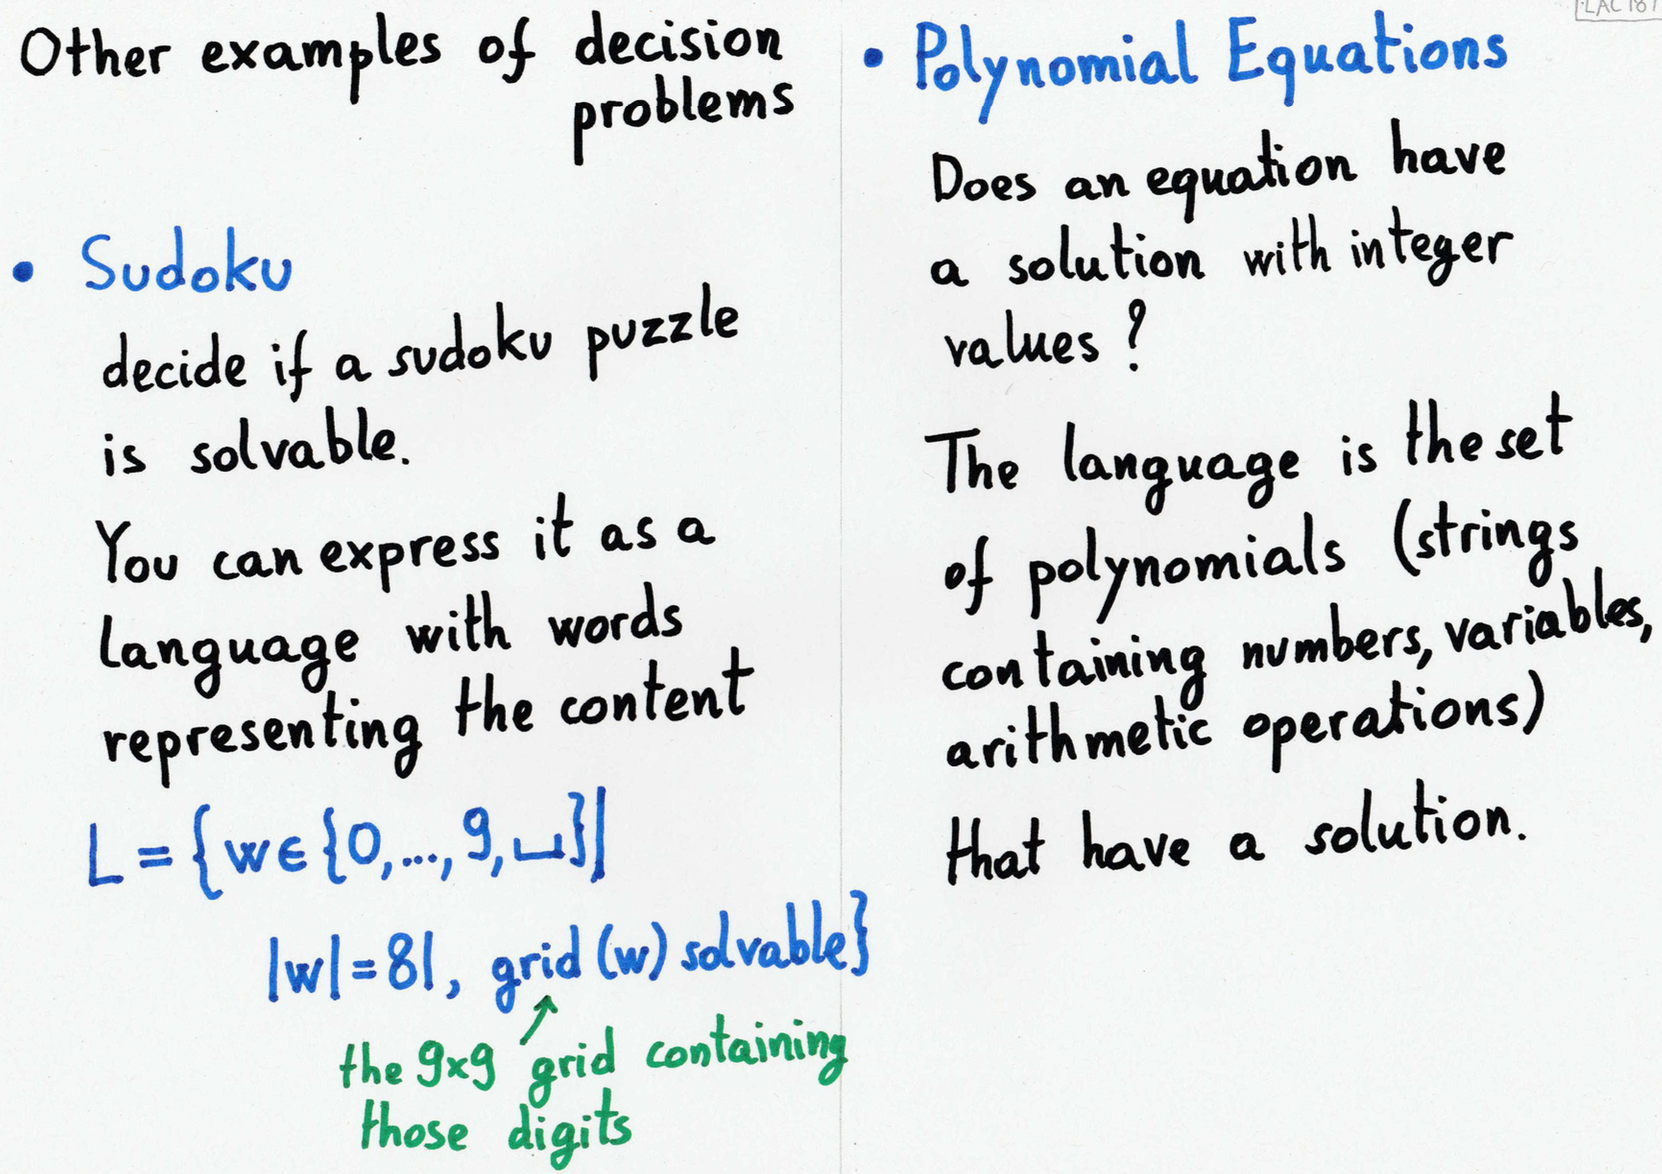 Other examples of decision
problems
• Sudoku
decide if a sudoku puzzle
is solvable.
You can express it as a
language with words
representing the content
L = {w∈{0,...,9,⎵}|
|w|=81, grid (w) solvable}
the 9x9 grid containing
those digits
LAC 187
• Polynomial Equations
Does an equation have
a solution with integer
values?
The language is the set
of polynomials (strings
containing numbers, variables,
arithmetic operations)
that have a solution.